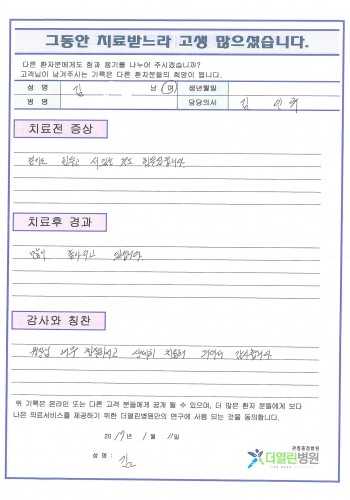 그동안 치료받느라 고생 많으셨습니다.
다른 환자분에게도 힘과 용기를 나누어 주시겠습니까?
고객님이 남겨주시는 기록은 다른 환자분들의 희망이 됩니다.
성 명 김 남 여 생년월일
병 명 담당의사 김
치료전 증상
걷기도 힘들고 서있는 것도 힘들었습니다
치료후 경과
많이 좋아지고 있습니다.
감사와 칭찬
매우 친절하시고 치료해 감사합니다
위 기록은 온라인 또는 다른 고객 분들에게 공개 될 수 있으며, 더 많은 환자 분들에게 보다
나은 의료서비스를 제공하기 위한 더열린병원만의 연구에 사용 되는 것을 동의합니다.
2017년 1월 11일
성 명 : 김
관절중점병원
더열린병원